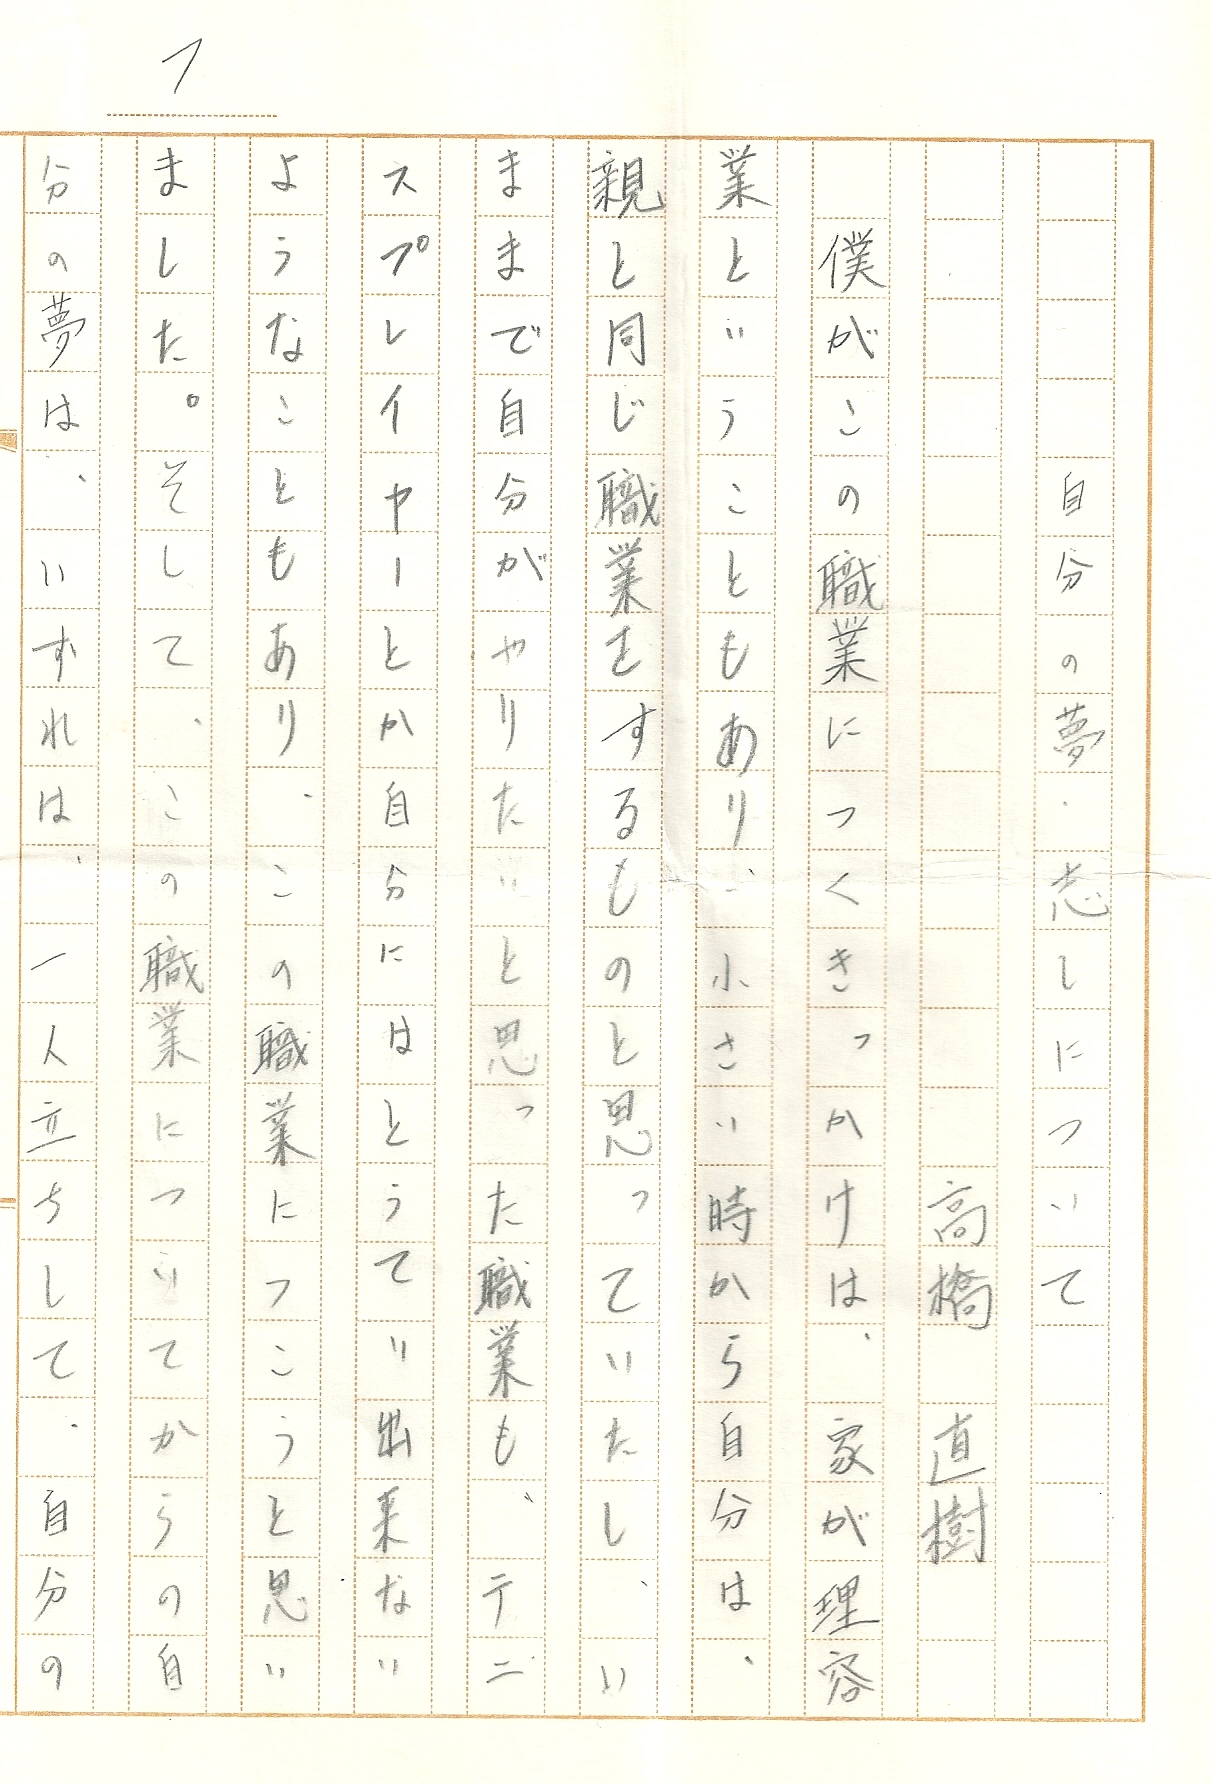 1
自分の夢、志しについて
高橋 直樹
僕がこの職業につくきっかけは、家が理容
業ということもあり、小さい時から自分は、
親と同じ職業をするものと思っていたし、い
ままで自分がやりたいと思った職業も、テニ
スプレイヤーとか自分にはとうてい出来ない
ようなこともあり、この職業につこうと思い
ました。そして、この職業についてからの自
分の夢は、いずれは、一人立ちして、自分の